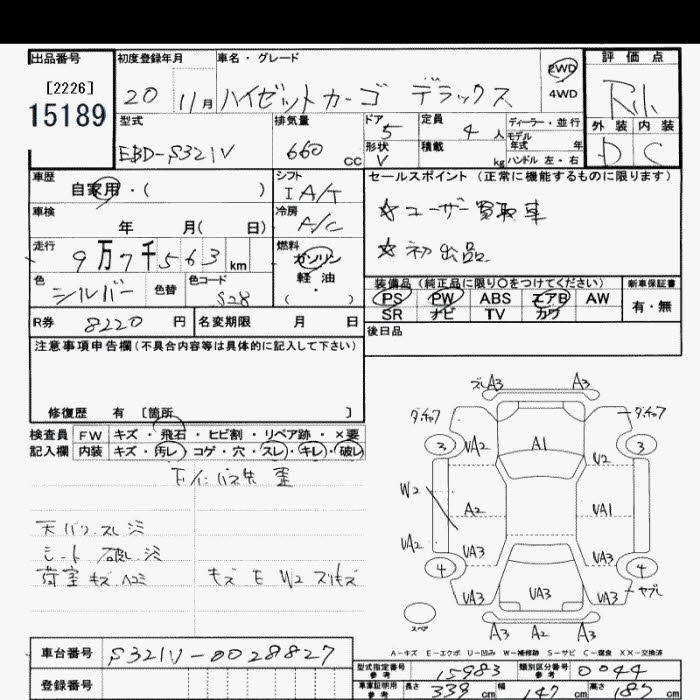 出品番号 初度登録年月 車名・グレード 2WD 評価点
[2226] 20 11月 ハイゼットカーゴ デラックス 4WD
15189
型式 排気量 ドア 5 定員 4 人 ディーラー・並行 外装 内装
EBD-S321V 660 cc 形状 V 積載 kg モデル年式 年 D C
ハンドル 左・右
車歴 シフト セールスポイント (正常に機能するものに限ります)
自家用・( ) IA/T ☆ユーザー買取車
車検 冷房
年 月( 日) A/C ☆初出品
走行 燃料
9万7千563km ガソリン
色 色替 色コード 軽油
シルバー S28 ・( )
装備品(純正品に限り○をつけてください) 新車保証書
PS PW ABS エアB AW 有・無
SR ナビ TV カワ
R券 8220円 名変期限 月 日 後日品
注意事項申告欄(不具合内容等は具体的に記入して下さい)
修復歴 有 [箇所 ]
検査員 FW キズ・飛石・ヒビ割・リペア跡・×要
記入欄 内装 キズ・汚レ・コゲ・穴・スレ・キレ・破レ
天バリ スレ
シート 破レ
荷室 キズ ヘコミ キズ E W2
A3 A3
3 UA2 A1 V2 3
W2 A2 UA1
UA2 UA3 UA3
4 UA3 UA3 UA3 4 ヤブレ
スペア A3 A2 A3
A-キズ E-エクボ U-凹み W-補修跡 S-サビ C-腐食 XX-交換済
車台番号 S321V-0028827
登録番号
型式指定番号 参考 15983 類別区分番号 参考 0044
車庫証明用 参考 長さ 339cm 幅 147cm 高さ 187cm